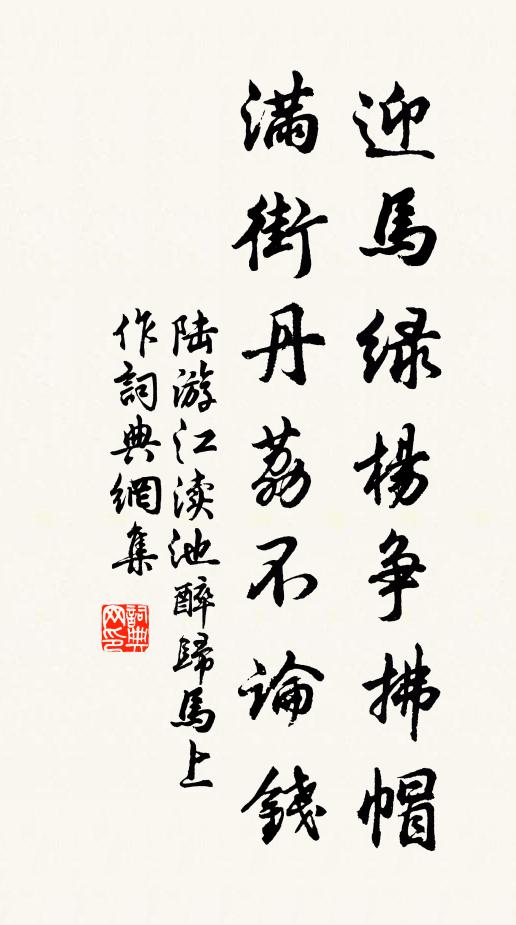 迎馬绿楊争拂帽
滿街丹荔不論錢
陆游江渎池醉歸馬上
作詞典網集
詞典网印